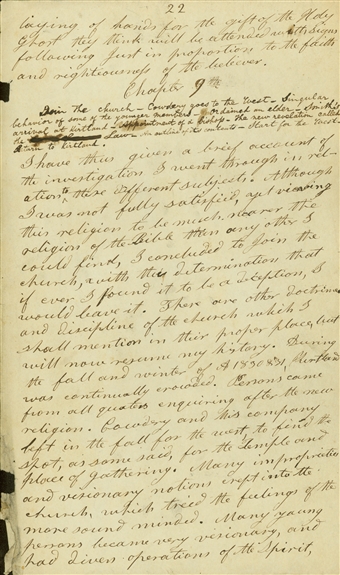 22
laying of hands for the gift of the Holy
Ghost they think will be attended with signs
following just in proportion to the faith
and righteousness of the believer.
Chapter 9th
Join the church — Cowdery goes to the West — Singular
behavior of some of the younger members — Ordained an elder — Smith's
arrival at Kirtland — Appointment of a bishop — The new revelation called
the Law — An outline of its contents — Start for the East —
Return to Kirtland.
I have thus given a brief account of
the investigation I went through in rel-
ation to these different subjects. Although
I was not fully satisfied, yet viewing
this religion to be much nearer the
religion of the Bible than any other I
could find, I concluded to join the
church, with this determination that
if ever I found it to be a deception, I
would leave it. There are other doctrines
and discipline of the church which I
shall mention in their proper place, but
will now resume my history. During
the fall and winter of 1830 &31, Kirtland
was continually crowded. Persons came
from all quarters enquiring after the new
religion. Cowdery and his company
left in the fall for the west, to find the
spot, as some said, for the temple and
place of gathering. Many improprieties
and visionary notions crept into the
church, which tried the feelings of the
more sound minded. Many young
persons became very visionary, and
had divers operations of the spirit,